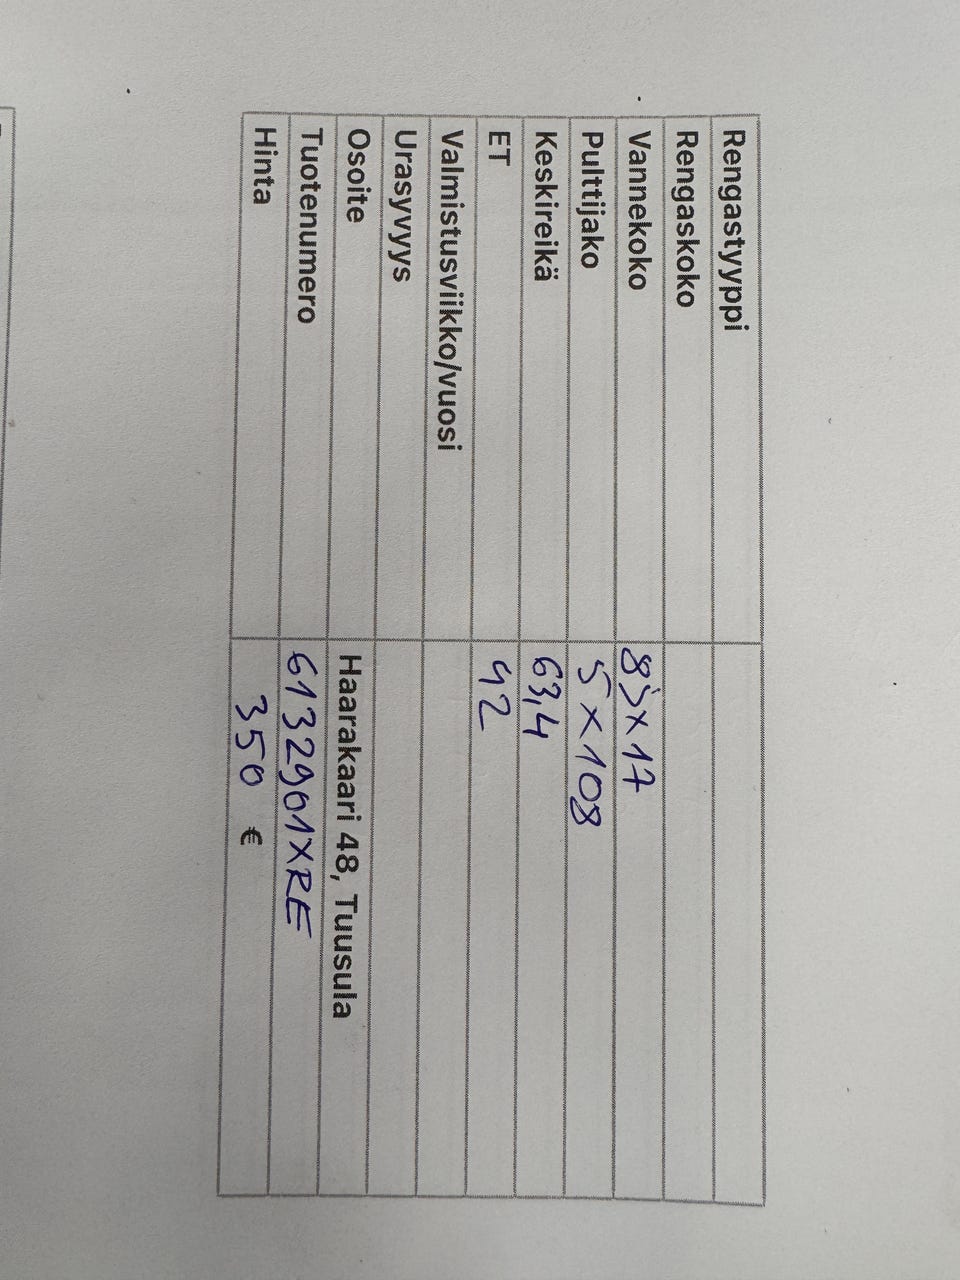 Rengastyyppi
Rengaskoko
Vannekoko 8Jx17
Pulttijako 5x108
Keskireikä 63,4
ET 42
Valmistusviikko/vuosi
Urasyvyys
Osoite Haarakaari 48, Tuusula
Tuotenumero 6132901XRE
Hinta 350 €